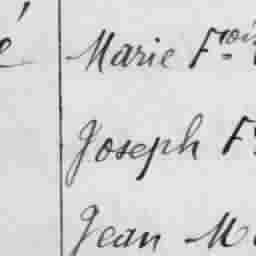 é Marie Fois
Joseph F
Jean M